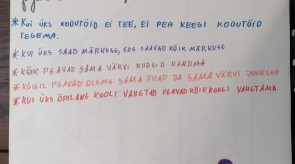 * KUI ÜKS KODUTÖID EI TEE, EI PEA KEEGI KODUTÖID
TEGEMA.
* KUI ÜKS SAAB MÄRKUSE, SIIS SAAVAD KÕIK MÄRKUSE
* KÕIK PEAVAD SAMA VÄRVI RIIDEID KANDMA
* KÕIGIL PEAVAD OLEMA SAMA PIKAD JA SAMA VÄRVI JUUKSED
* KUI ÜKS ÕPILANE KOOLI VAHETAB PEAVAD KÕIK KOOLI VAHETAMA